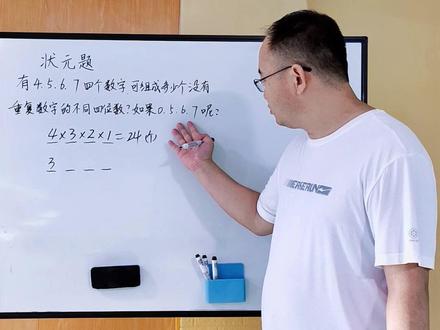 状元题
有4.5.6.7四个数字可组成多少个没有
重复数字的不同四位数?如果0.5.6.7呢?
4×3×2×1=24(个)
3 _ _ _